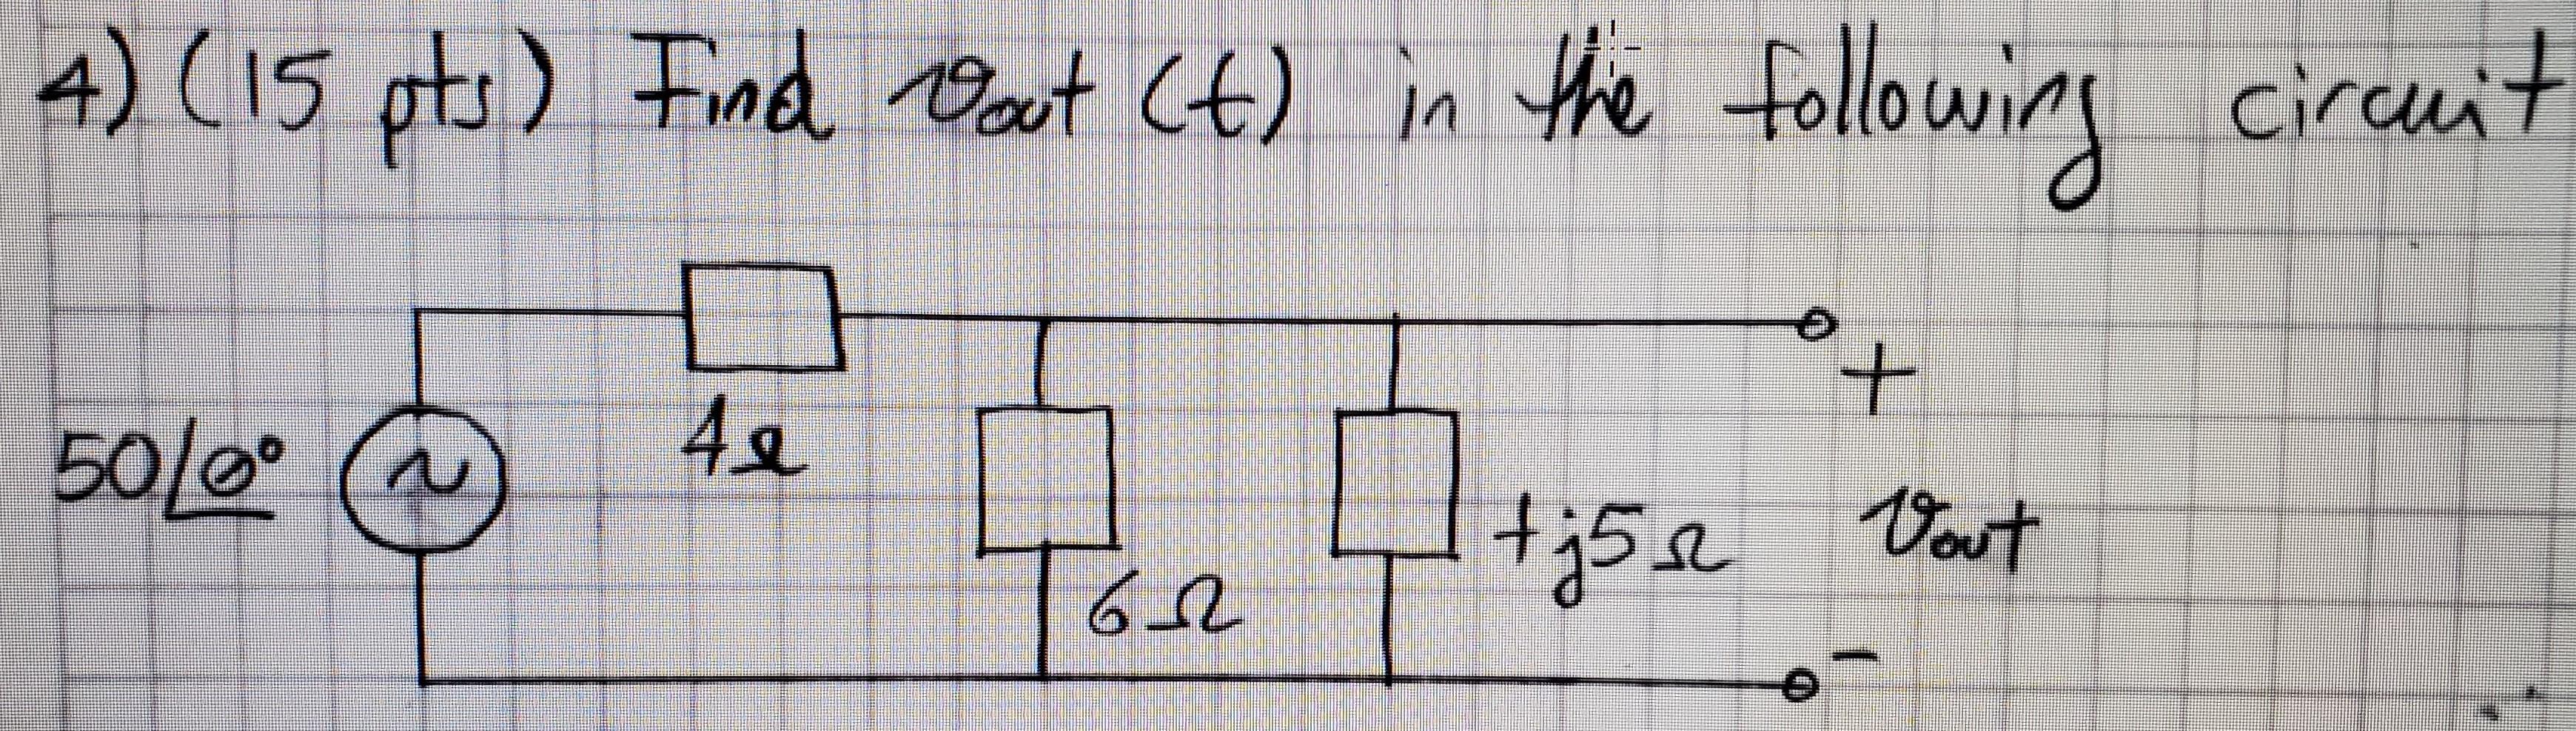 4) (15 pts) Find vout (t) in the following circuit
50/0°
4Ω
6Ω
+j5Ω
+
vout
-